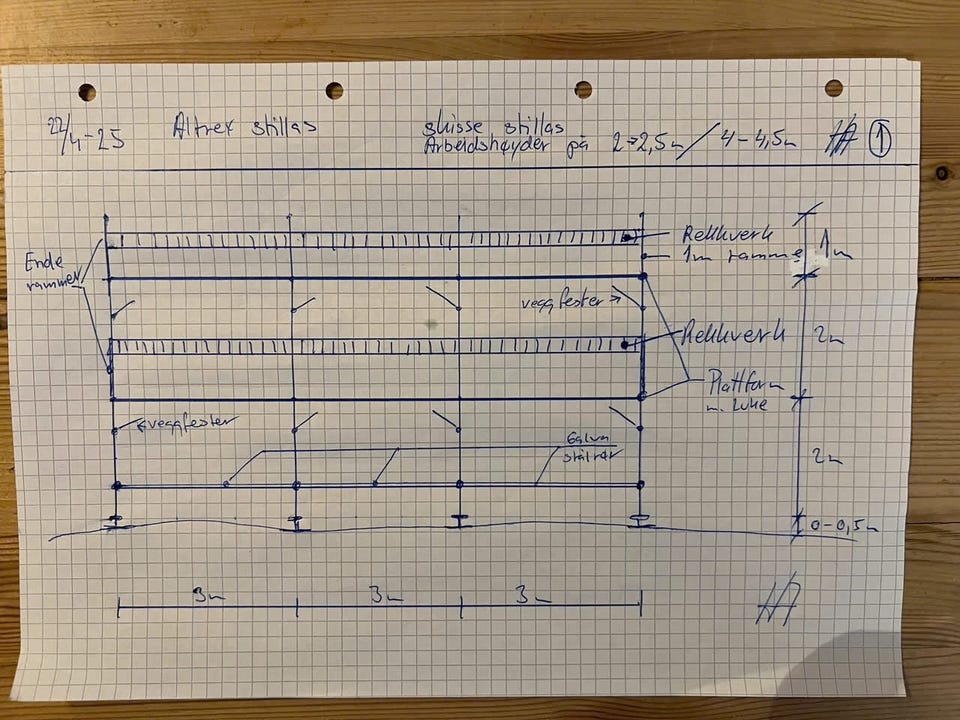 22/4-25
Altrex stillas
skisse stillas
Arbeidshøyder på 2→2,5m / 4-4,5m
1
Ende
rammer
Rekkverk
1m ramme
1m
veggfester →
Rekkverk
2m
Plattform
m. luke
← veggfester
Galvn
stålrør
2m
0-0,5m
3m
3m
3m